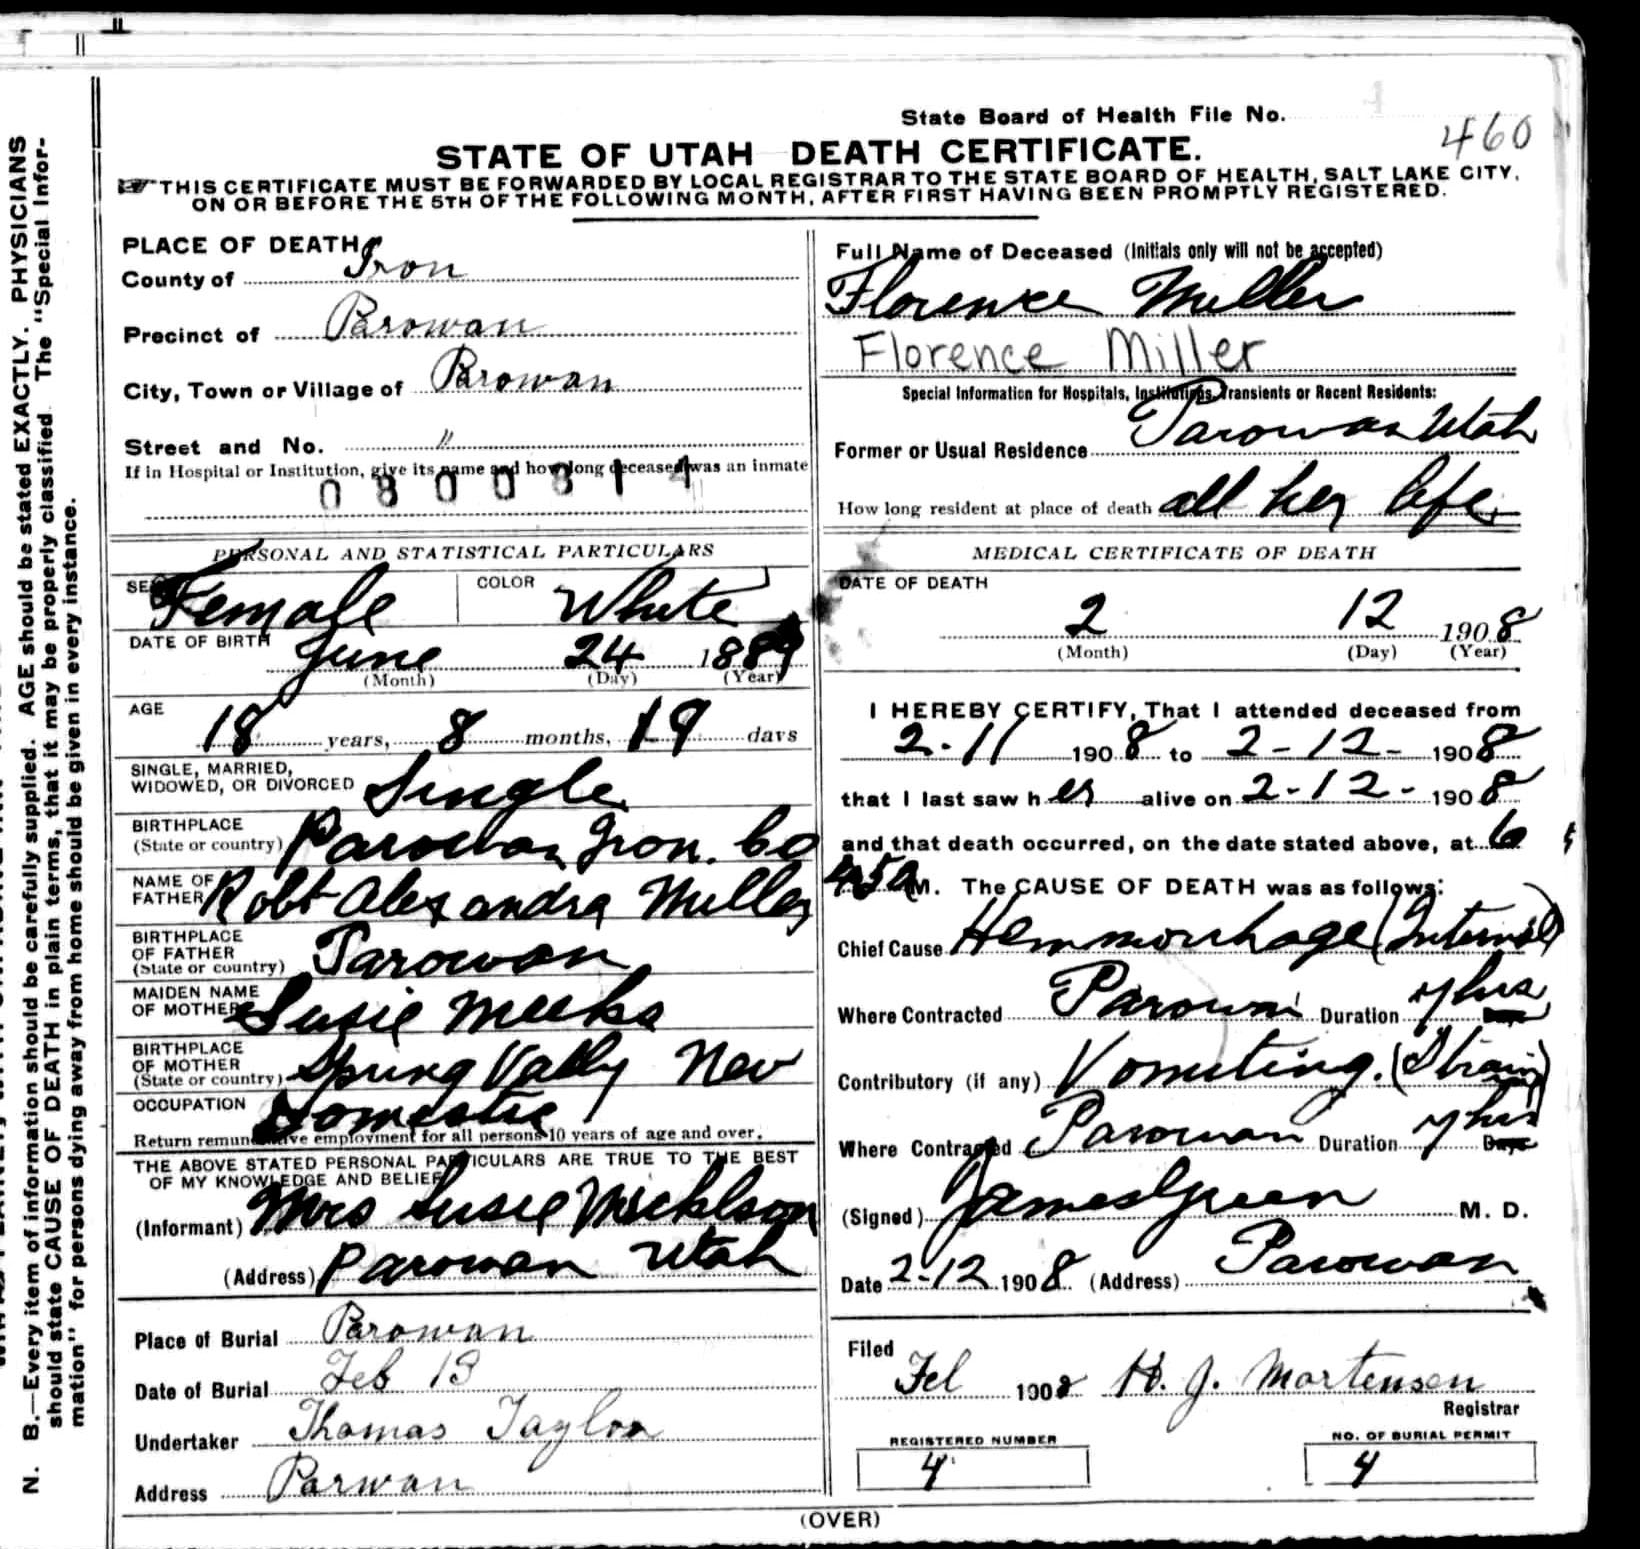 State Board of Health File No.
460
STATE OF UTAH DEATH CERTIFICATE.
THIS CERTIFICATE MUST BE FORWARDED BY LOCAL REGISTRAR TO THE STATE BOARD OF HEALTH, SALT LAKE CITY,
ON OR BEFORE THE 5TH OF THE FOLLOWING MONTH, AFTER FIRST HAVING BEEN PROMPTLY REGISTERED.
PLACE OF DEATH
County of Iron
Precinct of Parowan
City, Town or Village of Parowan
Street and No. "
If in Hospital or Institution, give its name and how long deceased was an inmate
0800314
PERSONAL AND STATISTICAL PARTICULARS
SEX Female COLOR White
DATE OF BIRTH June 24 1889
(Month) (Day) (Year)
AGE
18 years, 8 months, 19 days
SINGLE, MARRIED,
WIDOWED, OR DIVORCED Single
BIRTHPLACE
(State or country) Parowan Iron. Co
NAME OF
FATHER Robt Alexandra Miller
BIRTHPLACE
OF FATHER
(State or country) Parowan
MAIDEN NAME
OF MOTHER Susie Meeks
BIRTHPLACE
OF MOTHER
(State or country) Spring Vally Nev
OCCUPATION Domestic
Return remunerative employment for all persons 10 years of age and over.
THE ABOVE STATED PERSONAL PARTICULARS ARE TRUE TO THE BEST
OF MY KNOWLEDGE AND BELIEF
(Informant) Mrs Susie Mickelson
(Address) Parowan Utah
Place of Burial Parowan
Date of Burial Feb 13
Undertaker Thomas Taylor
Address Parwan
Full Name of Deceased (Initials only will not be accepted)
Florence Miller
Florence Miller
Special Information for Hospitals, Institutions, Transients or Recent Residents:
Former or Usual Residence Parowan Utah
How long resident at place of death all her life
MEDICAL CERTIFICATE OF DEATH
DATE OF DEATH
2 12 1908
(Month) (Day) (Year)
I HEREBY CERTIFY, That I attended deceased from
2-11 1908 to 2-12- 1908
that I last saw her alive on 2-12- 1908
and that death occurred, on the date stated above, at 6
45 A M. The CAUSE OF DEATH was as follows:
Chief Cause Hemmorrhage (Internal)
Where Contracted Parowan Duration 7 hrs
Contributory (if any) Vomiting. (Strain)
Where Contracted Parowan Duration 7 hrs Days
(Signed) James Green M. D.
Date 2-12 1908 (Address) Parowan
Filed
Feb 1908 H. J. Mortensen
Registrar
REGISTERED NUMBER
4
NO. OF BURIAL PERMIT
4
(OVER)
N. B.—Every item of information should be carefully supplied. AGE should be stated EXACTLY. PHYSICIANS
should state CAUSE OF DEATH in plain terms, that it may be properly classified. The "Special Infor-
mation" for persons dying away from home should be given in every instance.